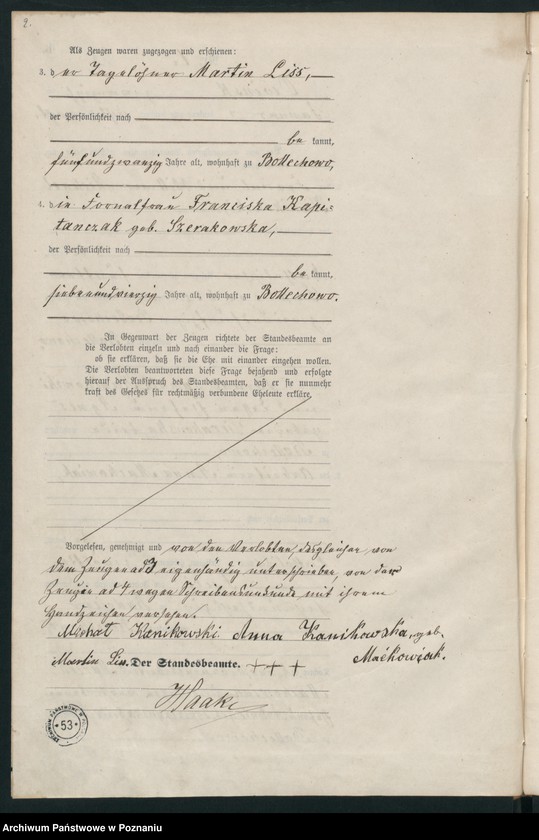 2.
Als Zeugen waren zugezogen und erschienen:
3. der Tagelöhner Martin Liss,
der Persönlichkeit nach
be kannt,
fünfundzwanzig Jahre alt, wohnhaft zu Bollechowo,
4. die Fornalfrau Franciska Kapi-
tanczak geb. Szerakowska,
der Persönlichkeit nach
be kannt,
siebenundvierzig Jahre alt, wohnhaft zu Bollechowo.
In Gegenwart der Zeugen richtete der Standesbeamte an
die Verlobten einzeln und nach einander die Frage:
ob sie erklären, daß sie die Ehe mit einander eingehen wollen.
Die Verlobten beantworteten diese Frage bejahend und erfolgte
hierauf der Ausspruch des Standesbeamten, daß er sie nunmehr
kraft des Gesetzes für rechtmäßig verbundene Eheleute erkläre.
Vorgelesen, genehmigt und von den Verlobten, desgleichen von
dem Zeugen ad 3 eigenhändig unterschrieben, von der
Zeugin ad 4 wegen Schreibensunkunde mit ihrem
Handzeichen versehen.
Michał Kanikowski Anna Kanikowska, geb.
Martin Liss. Der Standesbeamte. +++ Maćkowiak.
Haake
53
Archiwum Państwowe w Poznaniu